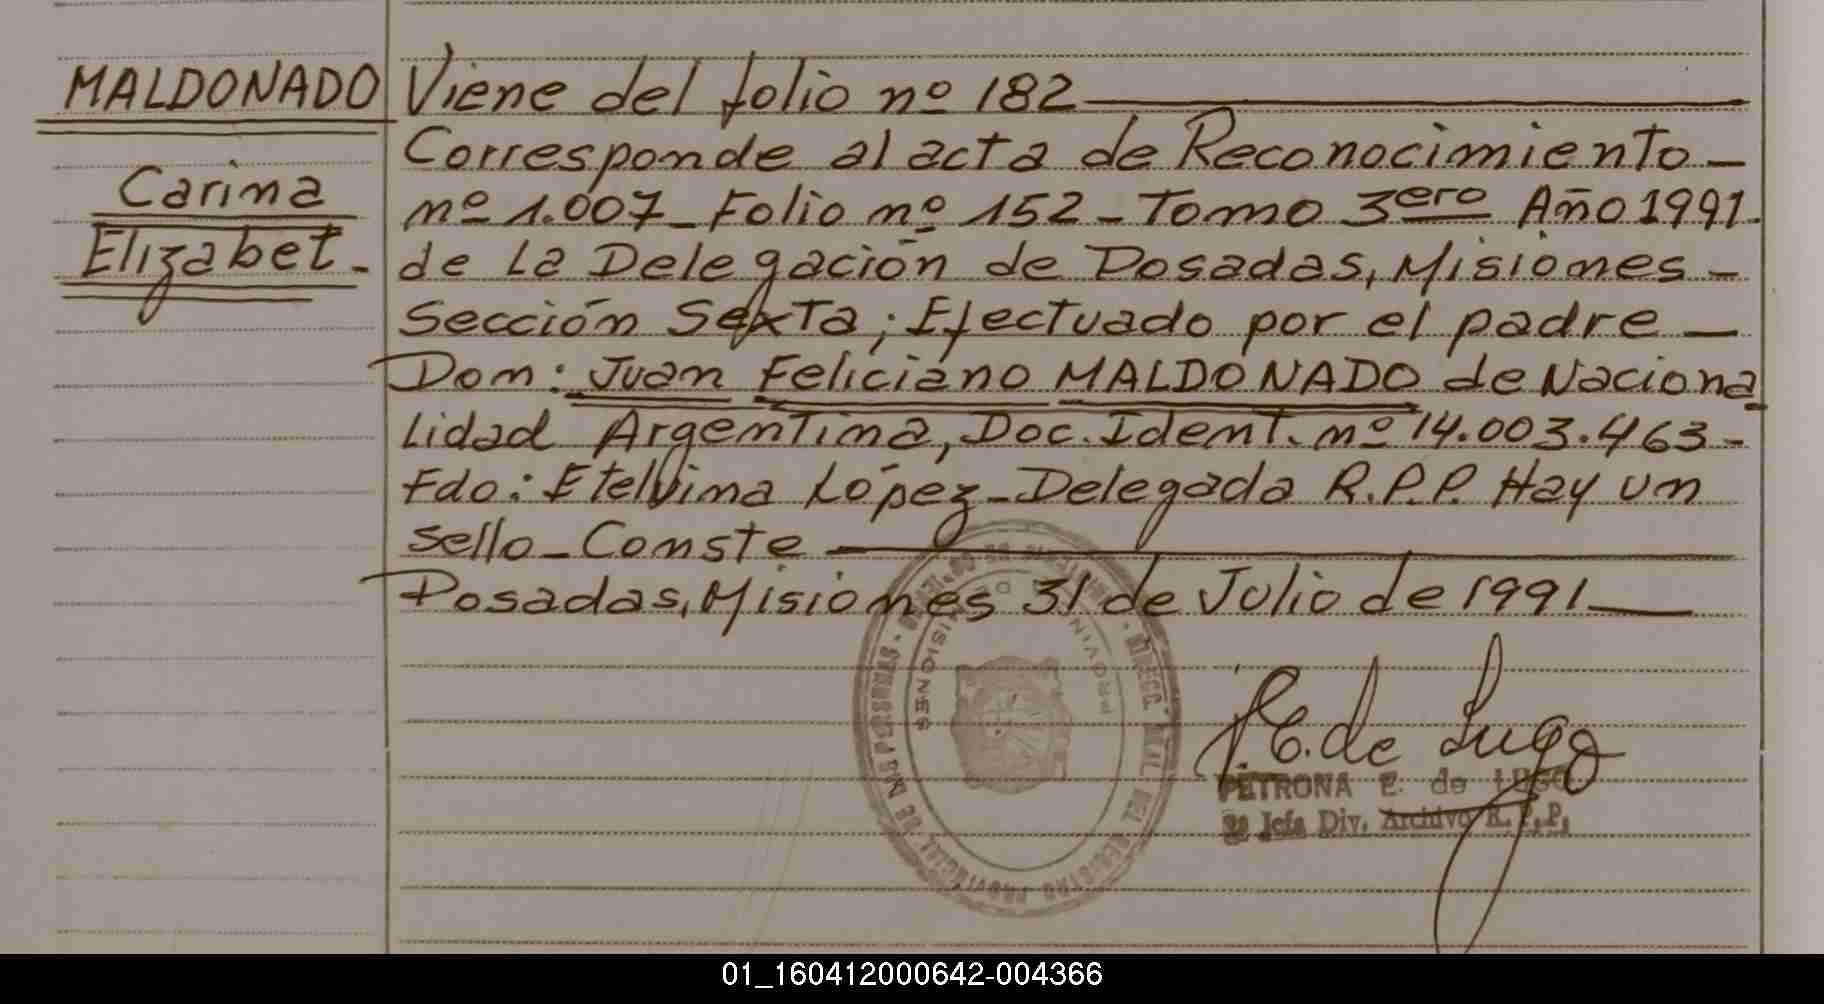 MALDONADO
Carina
Elizabet-
Viene del folio nº 182
Corresponde al acta de Reconocimiento-
nº 1.007-Folio nº 152-Tomo 3ero Año 1991-
de La Delegación de Posadas, Misiones-
Sección Sexta; Efectuado por el padre-
Don: Juan Feliciano MALDONADO de Naciona
lidad Argentina, Doc. Ident. nº 14.003.463-
Fdo: Etelvina López-Delegada R.P.P. Hay un
sello-Conste
Posadas, Misiones 31 de Julio de 1991
P.E. de Lugo
PETRONA E. de LUGO
Jefa Div. Archivo R.P.P.
PROVINCIA MISIONES
REGISTRO PROVINCIAL DE LAS PERSONAS
01_160412000642-004366